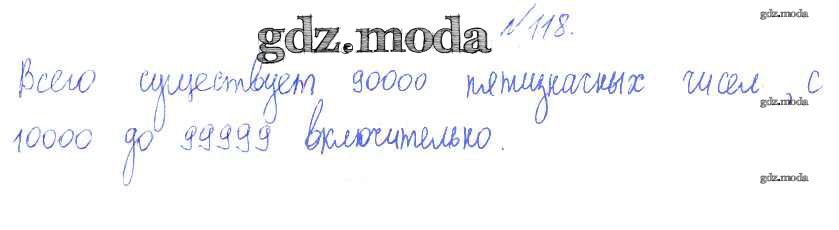 №118.
gdz.moda
gdz.moda
Всего существует 90000 пятизначных чисел, с
gdz.moda
10000 до 99999 включительно.
gdz.moda